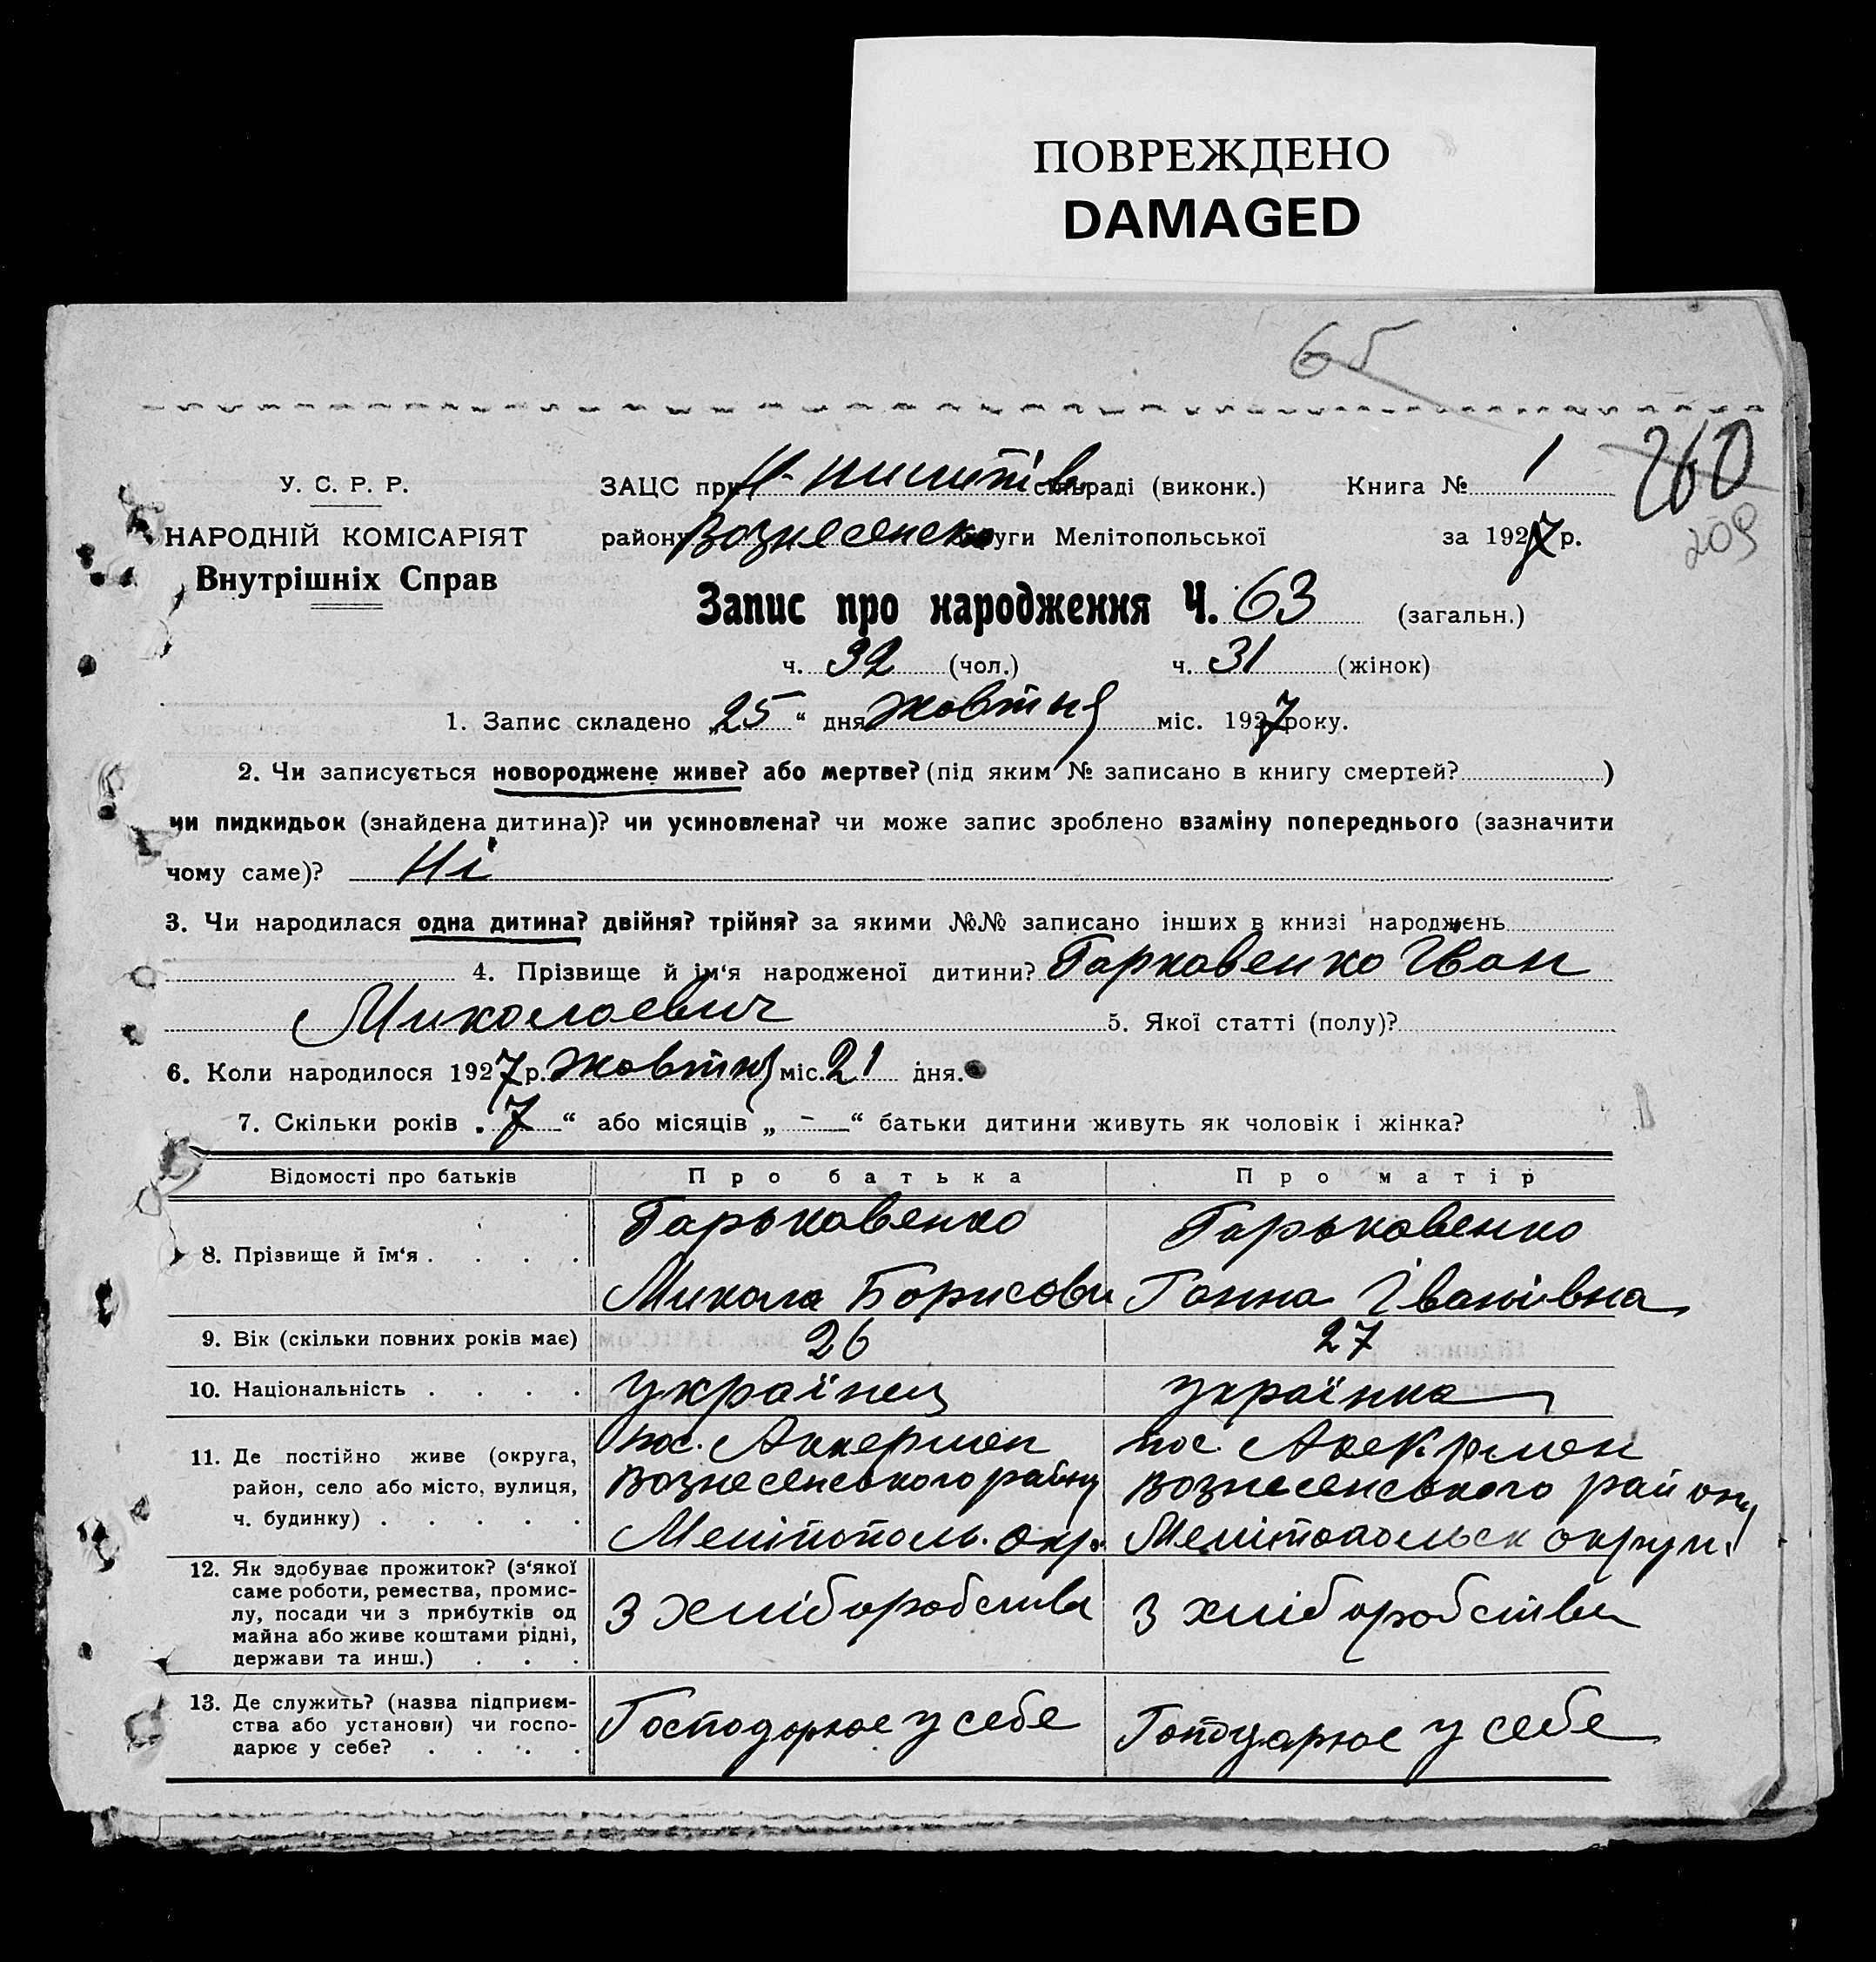 ПОВРЕЖДЕНО
DAMAGED
65
У. С. Р. Р.
НАРОДНІЙ КОМІСАРІЯТ
Внутрішніх Справ
ЗАЦС при сільраді (виконк.) Книга № 1
260
209
району Вознесенсько округи Мелітопольської за 1927 р.
Запис про народження Ч. 63 (загальн.)
ч. 32 (чол.) ч. 31 (жінок)
1. Запис складено „25“ дня жовтня міс. 1927 року.
2. Чи записується новороджене живе? або мертве? (під яким № записано в книгу смертей? )
чи пидкидьок (знайдена дитина)? чи усиновлена? чи може запис зроблено взаміну попереднього (зазначити
чому саме)? Ні
3. Чи народилася одна дитина? двійня? трійня? за якими №№ записано інших в книзі народжень
4. Прізвище й ім‘я народженої дитини? Гарковенко Іван
Миколаевич 5. Якої статті (полу)?
6. Коли народилося 1927 р. жовтня міс. 21 дня.
7. Скільки років „7“ або місяців „-“ батьки дитини живуть як чоловік і жінка?
Відомості про батьків Про батька Про матір
8. Прізвище й їм‘я . . . .
Гарьковенко
Микола Борисови
Гарьковенко
Ганна Іванівна
9. Вік (скільки повних років має) 26 27
10. Національність . . . . українец українка
11. Де постійно живе (округа,
район, село або місто, вулиця,
ч. будинку) . . . . .
пос. Аккермен
Вознесенського району
Мелітополь. окр.
пос. Аекрмен
Вознесенського району
Мелітопольск округи
12. Як здобуває прожиток? (з‘якої
саме роботи, ремества, промис-
лу, посади чи з прибутків од
майна або живе коштами рідні,
держави та инш.) . . .
З хліборобства
З хліборобства
13. Де служить? (назва підприєм-
ства або установи) чи госпо-
дарює у себе? . . . .
Господорює у себе
Гоподарює у себе